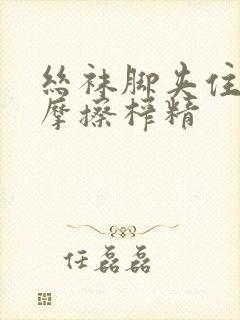 丝袜脚夹住
摩擦榨精
任磊磊